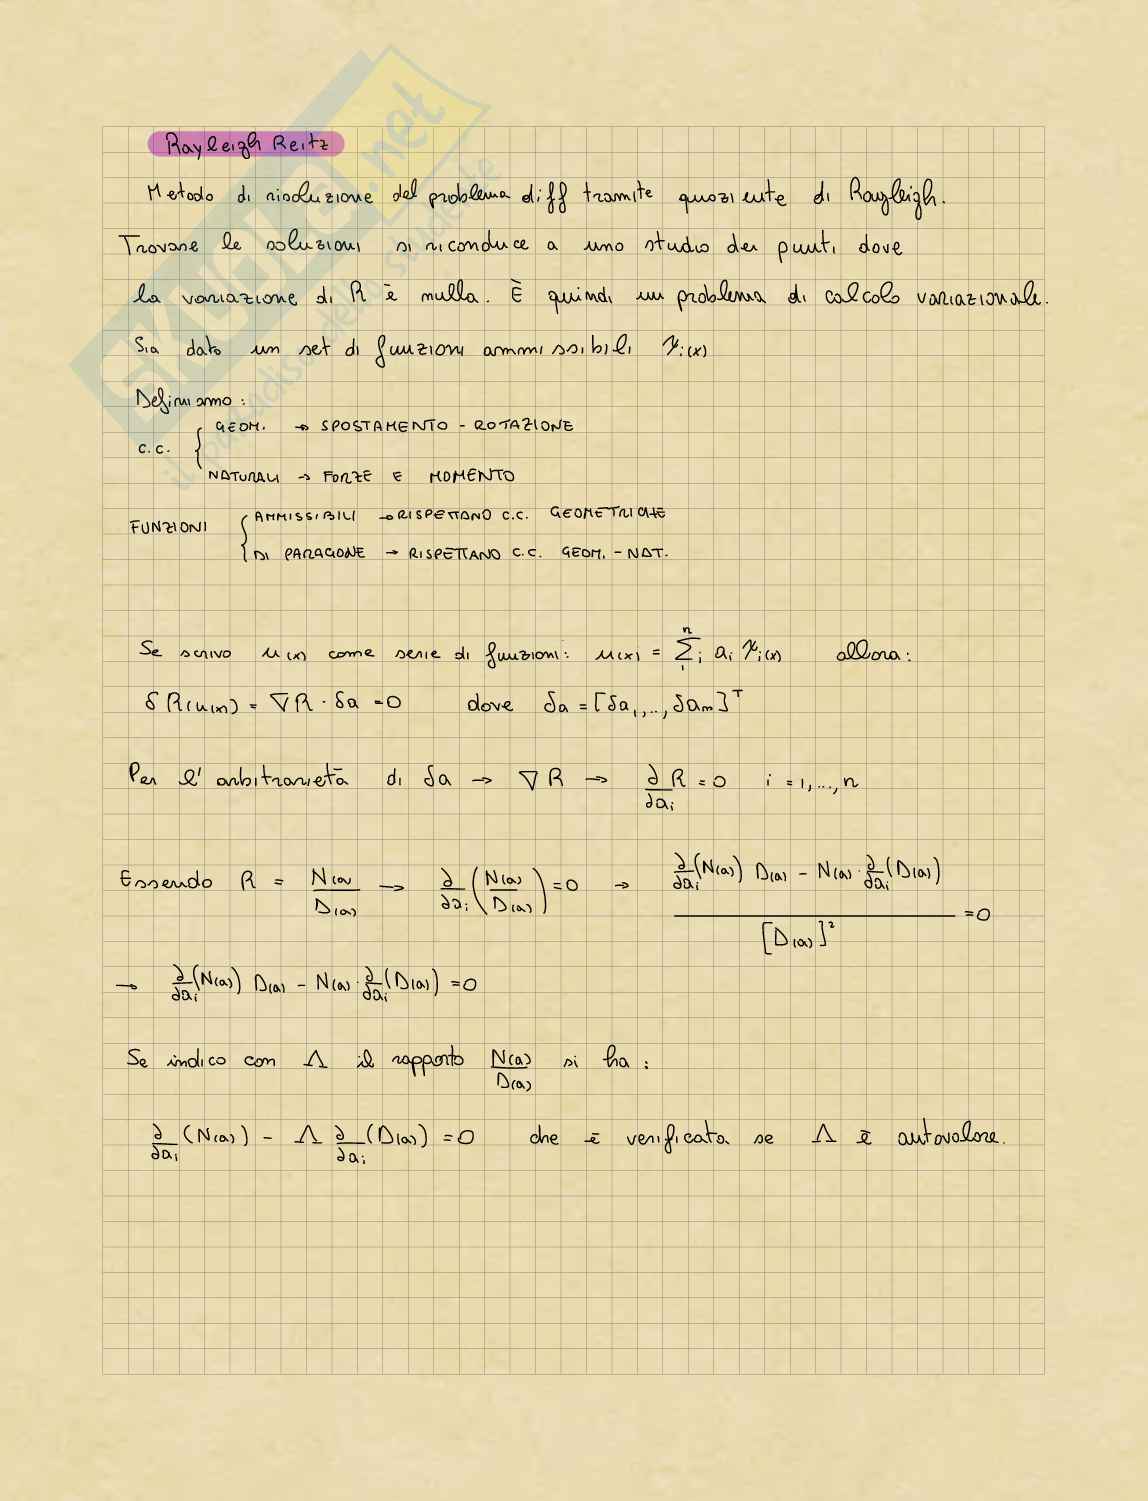 SKUOLA.net
il paradiso dello studente
Rayleigh Reitz
Metodo di risoluzione del problema diff tramite quoziente di Rayleigh.
Trovare le soluzioni si riconduce a uno studio dei punti dove
la variazione di R è nulla. È quindi un problema di calcolo variazionale.
Sia dato un set di funzioni ammissibili γi(x)
Definiamo:
c.c. { GEOM. → SPOSTAMENTO - ROTAZIONE
NATURALI → FORZE E MOMENTO
FUNZIONI { AMMISSIBILI → RISPETTANO C.C. GEOMETRICHE
DI PARAGONE → RISPETTANO C.C. GEOM. - NAT.
Se scrivo u(x) come serie di funzioni: u(x) = Σ₁ⁿi ai γi(x) allora:
δR(u(x)) = ∇R · δa = 0 dove δa = [δa₁,..,δan]ᵀ
Per l'arbitrarietà di δa → ∇R → ∂R/∂ai = 0 i = 1,...,n
Essendo R = N(a)/D(a) → ∂/∂ai (N(a)/D(a)) = 0 → (∂/∂ai (N(a)) D(a) - N(a) · ∂/∂ai (D(a))) / [D(a)]² = 0
→ ∂/∂ai (N(a)) D(a) - N(a) · ∂/∂ai (D(a)) = 0
Se indico con Λ il rapporto N(a)/D(a) si ha:
∂/∂ai (N(a)) - Λ ∂/∂ai (D(a)) = 0 che è verificata se Λ è autovalore.